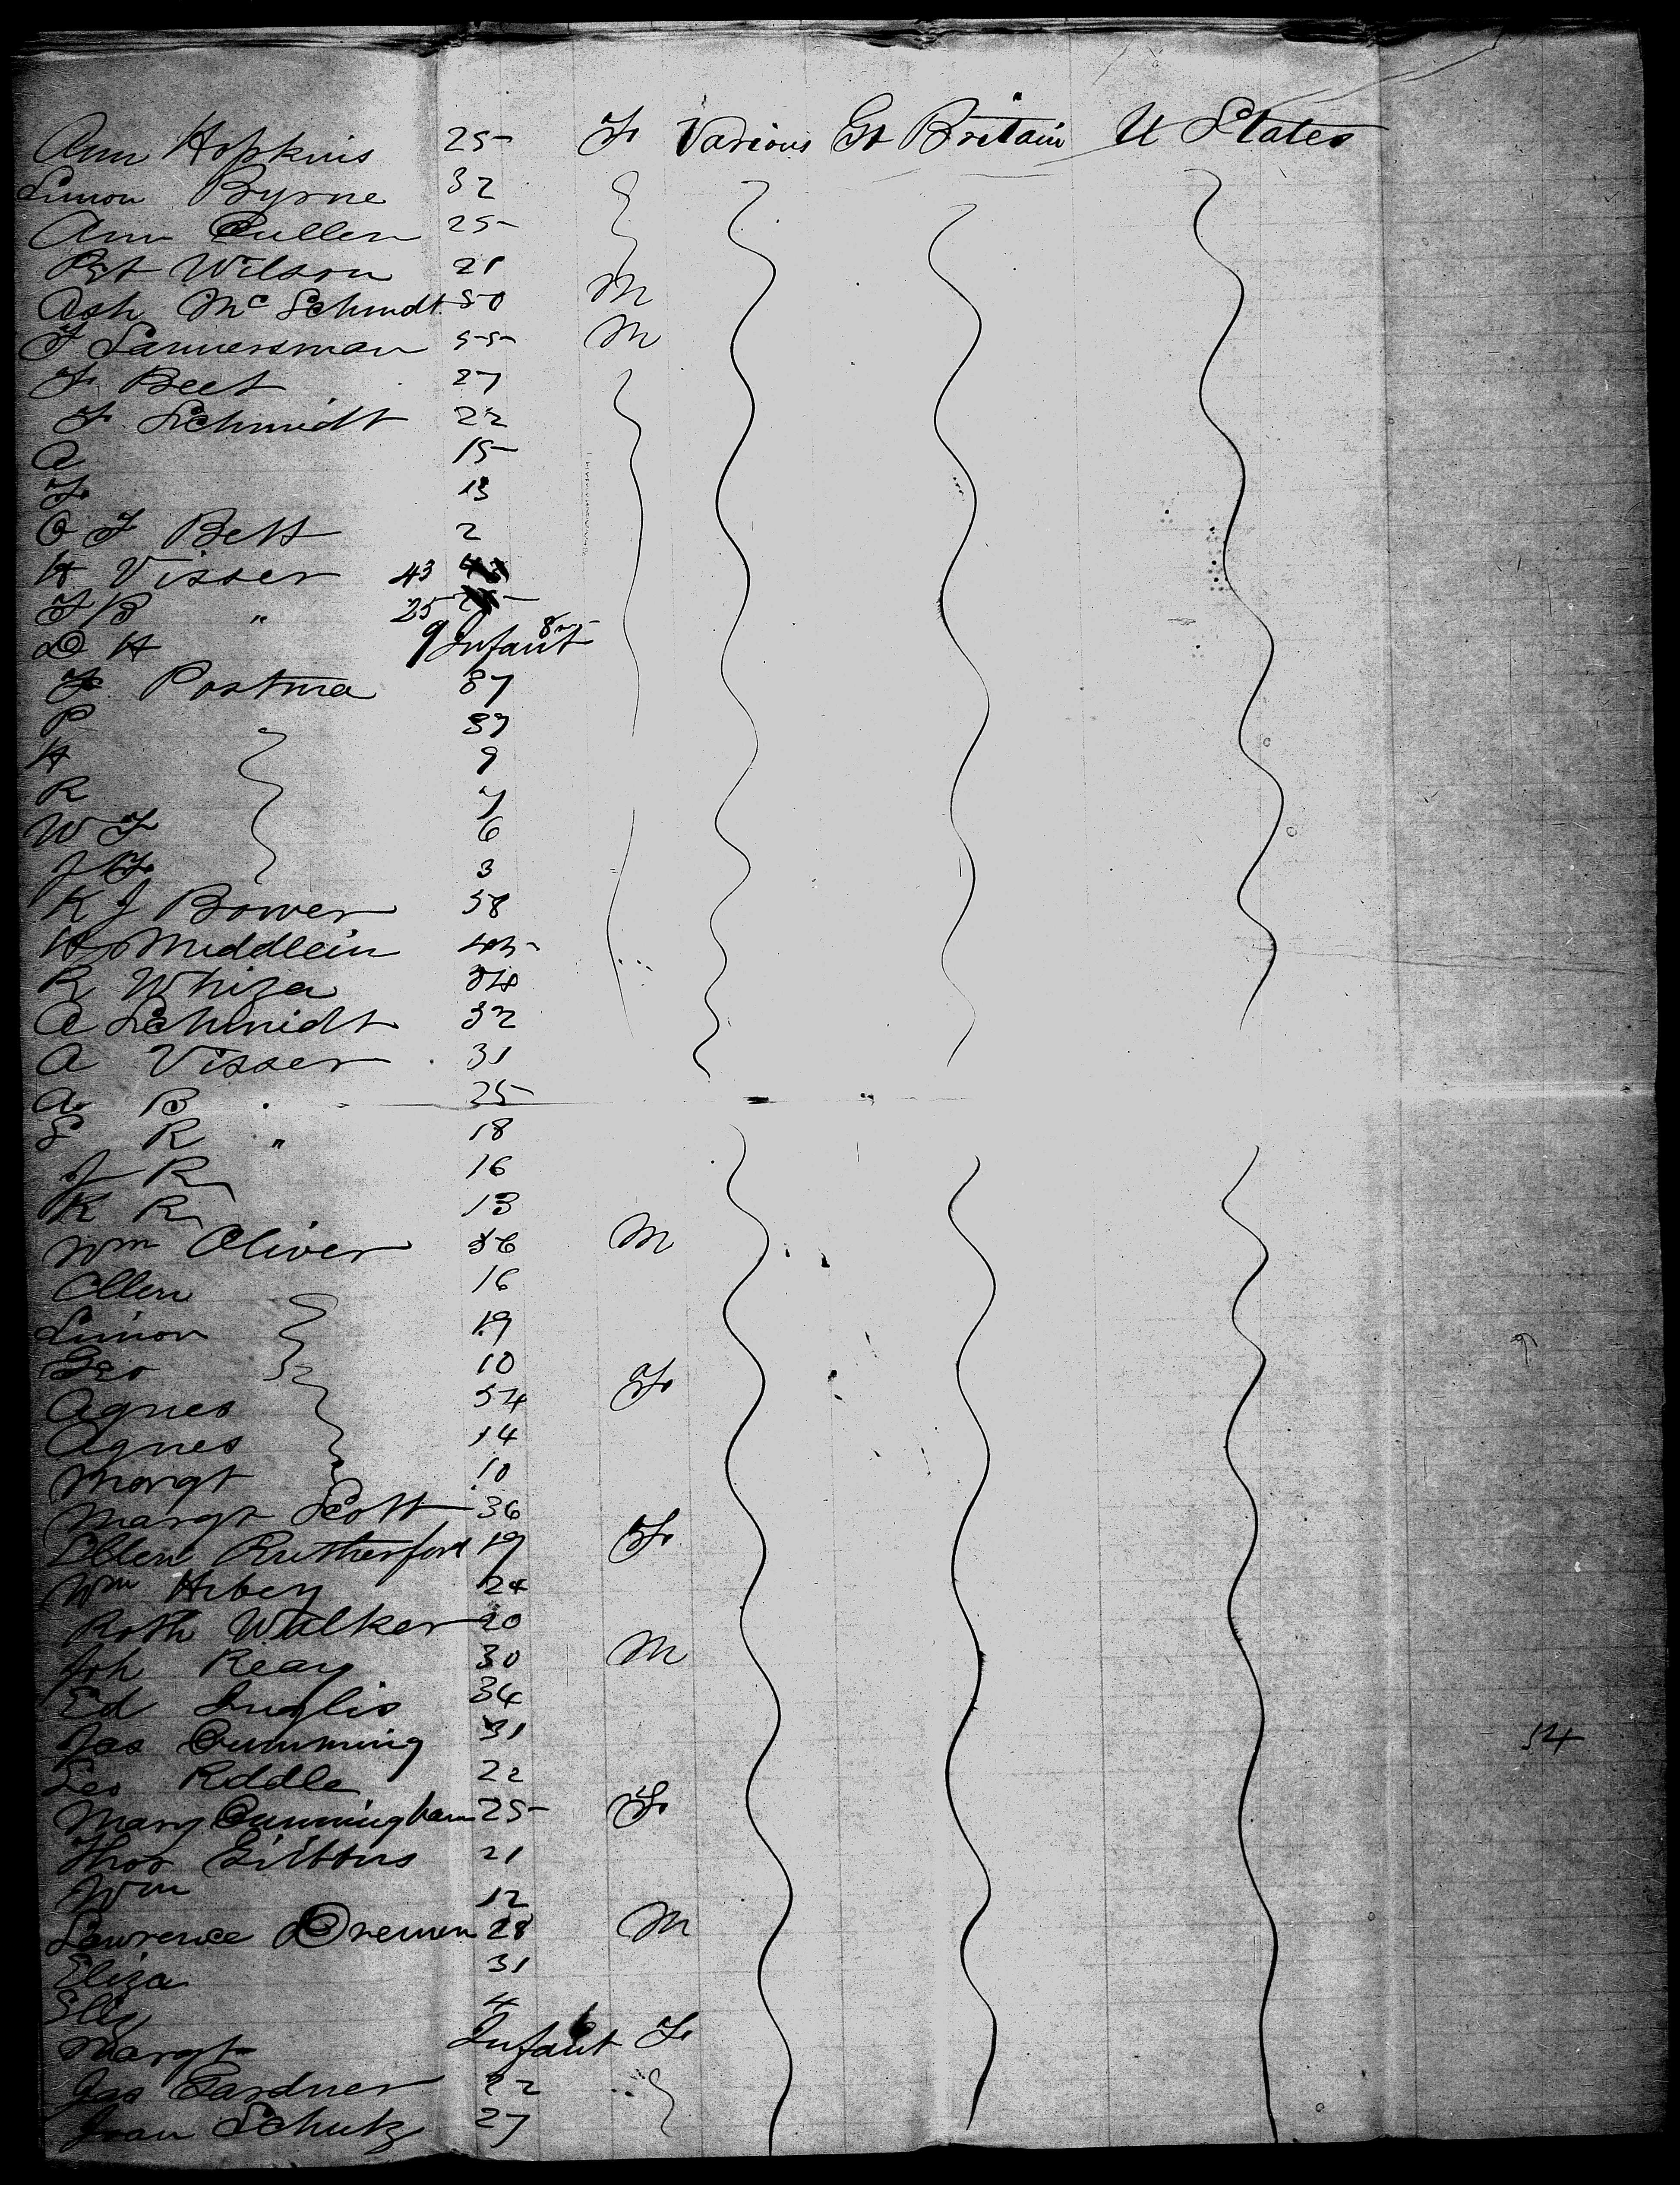 Ann Hopkins 25 F Various Gt Britain U States
Simon Byrne 32
Ann Cullen 25
Pat Wilson 21
Mc Schmdt 50 M
F Lannersman 55 M
F. Beet 27
F. Schmidt 22
A 15
F. 13
O F Bett 2
H Visser 43
F B " 25
D H 9 Infant 8m
F Postma 37
P 37
H 9
R 7
W F 6
J F. 3
K J Bower 58
H Middlein 45
R Whiza 34
A Schmidt 32
A Visser 31
A B " 25
S R " 18
J R 16
K R 13
Wm Oliver 56 M
Allen 16
Simon 19
Geo 10
Agnes 54 F
Agnes 14
Margt 10
Margt Scott 36
Ellen Rutherford 19 F
Wm 24
Roth Walker 20
Joh Reay 30 M
Ed Inglis 34
Jas Cumming 31 54
Geo Rddle 22
Mary Cunningham 25 F
Thos Gibbons 21
Wm 12
Lawrence 28 M
Eliza 31
Eliz 4
Margt Infant 6 F
Jas Gardner 22
Joan Schutz 27